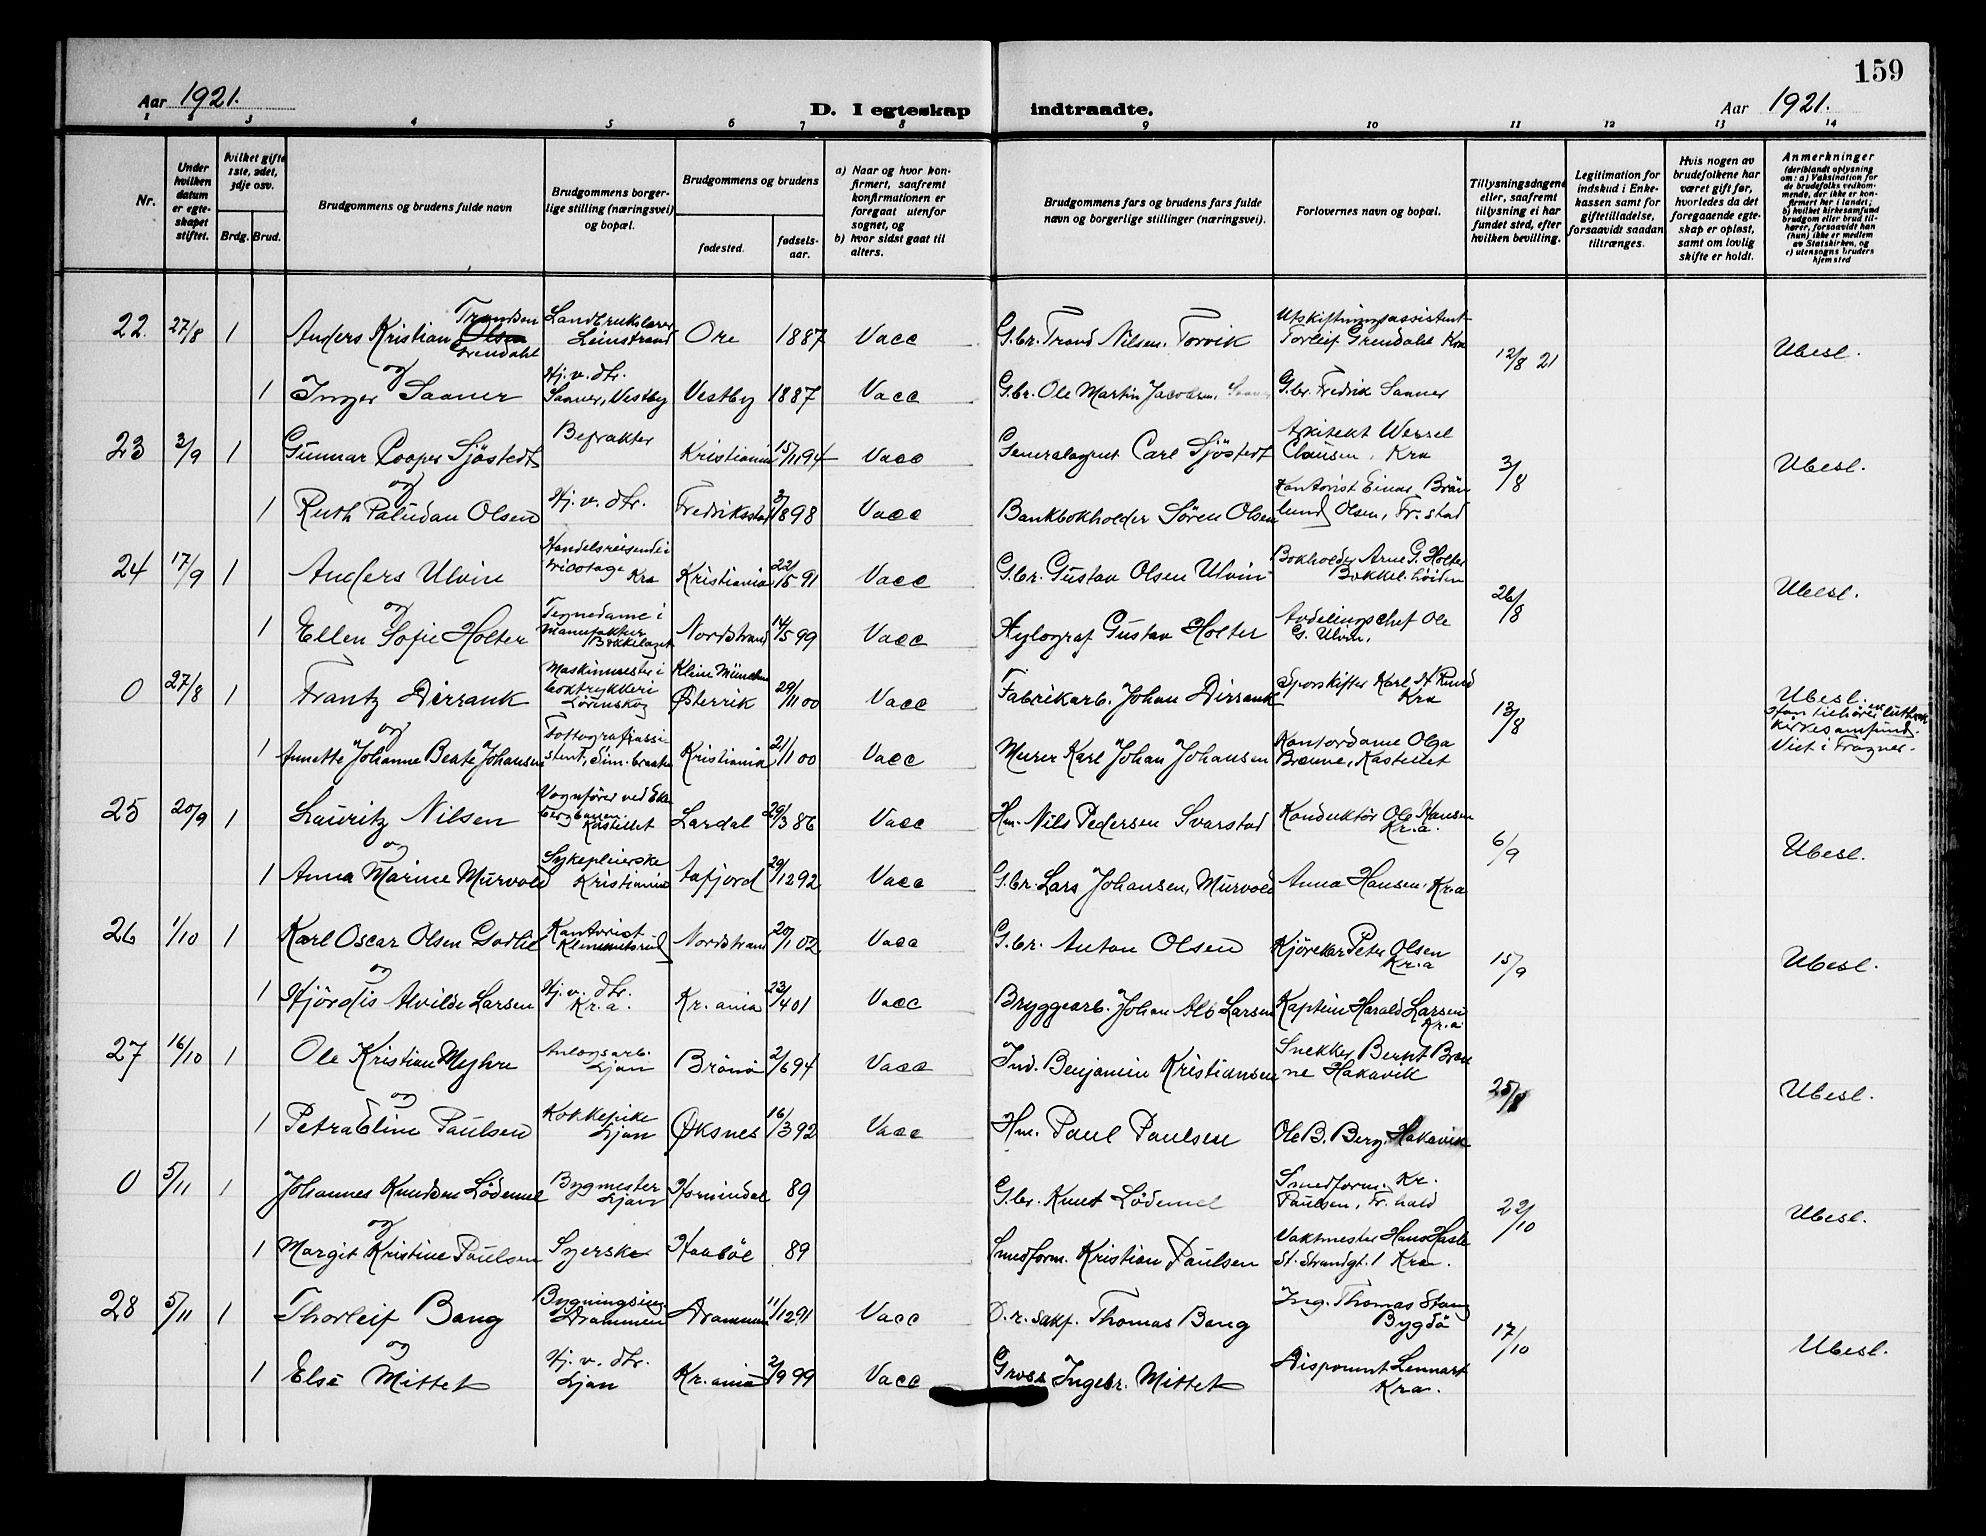 159
Aar 1921.
D. I egteskap indtraadte.
Aar 1921.
1 2 3 4 5 6 7 8 9 10 11 12 13 14
Nr.
Under hvilken datum er egteskapet stiftet.
hvilket gifte 1ste, 2det, 3dje osv.
Brdg. Brud.
Brudgommens og brudens fulde navn
Brudgommens borgerlige stilling (næringsvei) og bopæl.
Brudgommens og brudens
fødested.
fødselsaar.
a) Naar og hvor konfirmert, saafremt konfirmationen er foregaat utenfor sognet, og
b) hvor sidst gaat til alters.
Brudgommens fars og brudens fars fulde navn og borgerlige stillinger (næringsvei).
Forlovernes navn og bopæl.
Tillysningsdagene eller, saafremt tillysning ei har fundet sted, efter hvilken bevilling.
Legitimation for indskud i Enkekassen samt for giftetilladelse, forsaavidt saadan tiltrænges.
Hvis nogen av brudefolkene har været gift før, hvorledes da det foregaaende egteskap er opløst, samt om lovlig skifte er holdt.
Anmerkninger (deriblandt oplysning om: a) Vaksination for de brudefolks vedkommende, der ikke er konfirmert her i landet; b) hvilket kirkesamfund brudgom eller brud tilhører, forsaavidt han (hun) ikke er medlem av Statskirken, og c) utensogns bruders hjemsted
22. 27/8 1 Anders Kristian Olsen Trondsen Grendahl Landbrukslærer Leinstrand Ore 1887 Vacc G.br. Trond Nilsen Torvik Utskiftningsassistent Torleif Grendahl Kra 12/8 21 Ubesl.
og
1 Inger Saaner Hj. v. dtr. Saaner, Vestby Vestby 1887 Vacc G.br. Ole Martin Jacobsen, Saaner G.br. Fredrik Saaner
23 3/9 1 Gunnar Cooper Sjöstedt Befrakter Kristiania 15/11 94 Vacc Generalagent Carl Sjöstedt Arkitekt Wessel Clausen, Kra 3/8 Ubesl.
og
1 Ruth Paludan Olsen Hj. v. dtr. Fredriksstad 3/8 98 Vacc Bankbokholder Sören Olsen Kontorist Einar Brönlund Olsen, Fr.stad
24 17/9 1 Anders Ulvin Handelsreisende i tricotage Kra Kristiania 22/5 91 Vacc G.br. Gustav Olsen Ulvin Bokholder Arne G. Holter Bekkel.höiden 26/8 Ubesl.
og
1 Ellen Sofie Holter Tegnedame i Manufaktur Bekkelaget Nordstrand 14/5 99 Vacc Xylograf Gustav Holter Avdelingschef Ole G. Ulvin,
0 27/8 1 Frantz Dirrank Maskinmester i boktrykkeri Lörenskog Klein München Østerrik 29/11 00 Vacc Fabrikarb. Johan Dirrank Sporskifter Karl A. Rund Kra 13/8 Ubesl. Han tilhörer en luthersk kirkesamfund. Viet i Frogner.
og
1 Annette Johanne Beate Johansen Fotografiassistent, Sim.braaten Kristiania 21/1 00 Vacc Murer Karl Johan Johansen Kontordame Olga Brenne, Kastellet
25 20/9 1 Lauritz Nilsen Vognförer ved Ekebergbanen. Kastellet Lardal 29/3 86 Vacc Hm. Nils Pedersen Svarstad Konduktör Ole Hansen Kr.a. 6/9 Ubesl.
og
1 Anna Marine Murvold Sykepleierske Kristiania Aafjord 29/12 92 Vacc G.br. Lars Johansen, Murvold Anna Hansen. Kr.a
26 1/10 1 Karl Oscar Olsen Godlie Kontorist Klemmetsrud Nordstrand 20/1 02 Vacc G.br. Anton Olsen Kjörekar Peter Olsen Kr.a 15/9 Ubesl.
og
1 Hjördis Alvilde Larsen Hj. v. dtr. Kr.a. Kr.ania 23/4 01 Vacc Bryggearb. Johan Alb Larsen Kaptein Harald Larsen Kr.a
27 16/10 1 Ole Kristian Myhre Anlægsarb. Ljan Brönö 2/6 94 Vacc Ind. Benjamin Kristiansen Snekker Bernt Brenne Hakavik 25/8 Ubesl.
og
1 Petra Eline Paulsen Kokkepike Ljan Øksnes 16/3 92 Vacc Hm. Paul Paulsen Ole B. Berg. Hakavik
0 5/11 1 Johannes Knudsen Lödemel Bygmester Ljan Hornindal 89 G.br. Knut Lödemel Smedform. Kr. Paulsen, Fr.hald 22/10 Ubesl.
og
1 Margit Kristine Paulsen Syerske Haaböl 89 Smedform. Kristian Paulsen Vaktmester Hans Hasle St. Strandgt. 1 Kra.
28 5/11 1 Thorleif Bang Bygningsing. Drammen Drammen 11/12 91 Vacc O.r.sakf. Thomas Bang Ing. Thomas Stang Bygdö 17/10 Ubesl.
og
1 Else Mittet Hj. v. dtr. Ljan Kr.ania 2/9 99 Vacc Gross Ingebr. Mittet Disponent Lennart Kra.